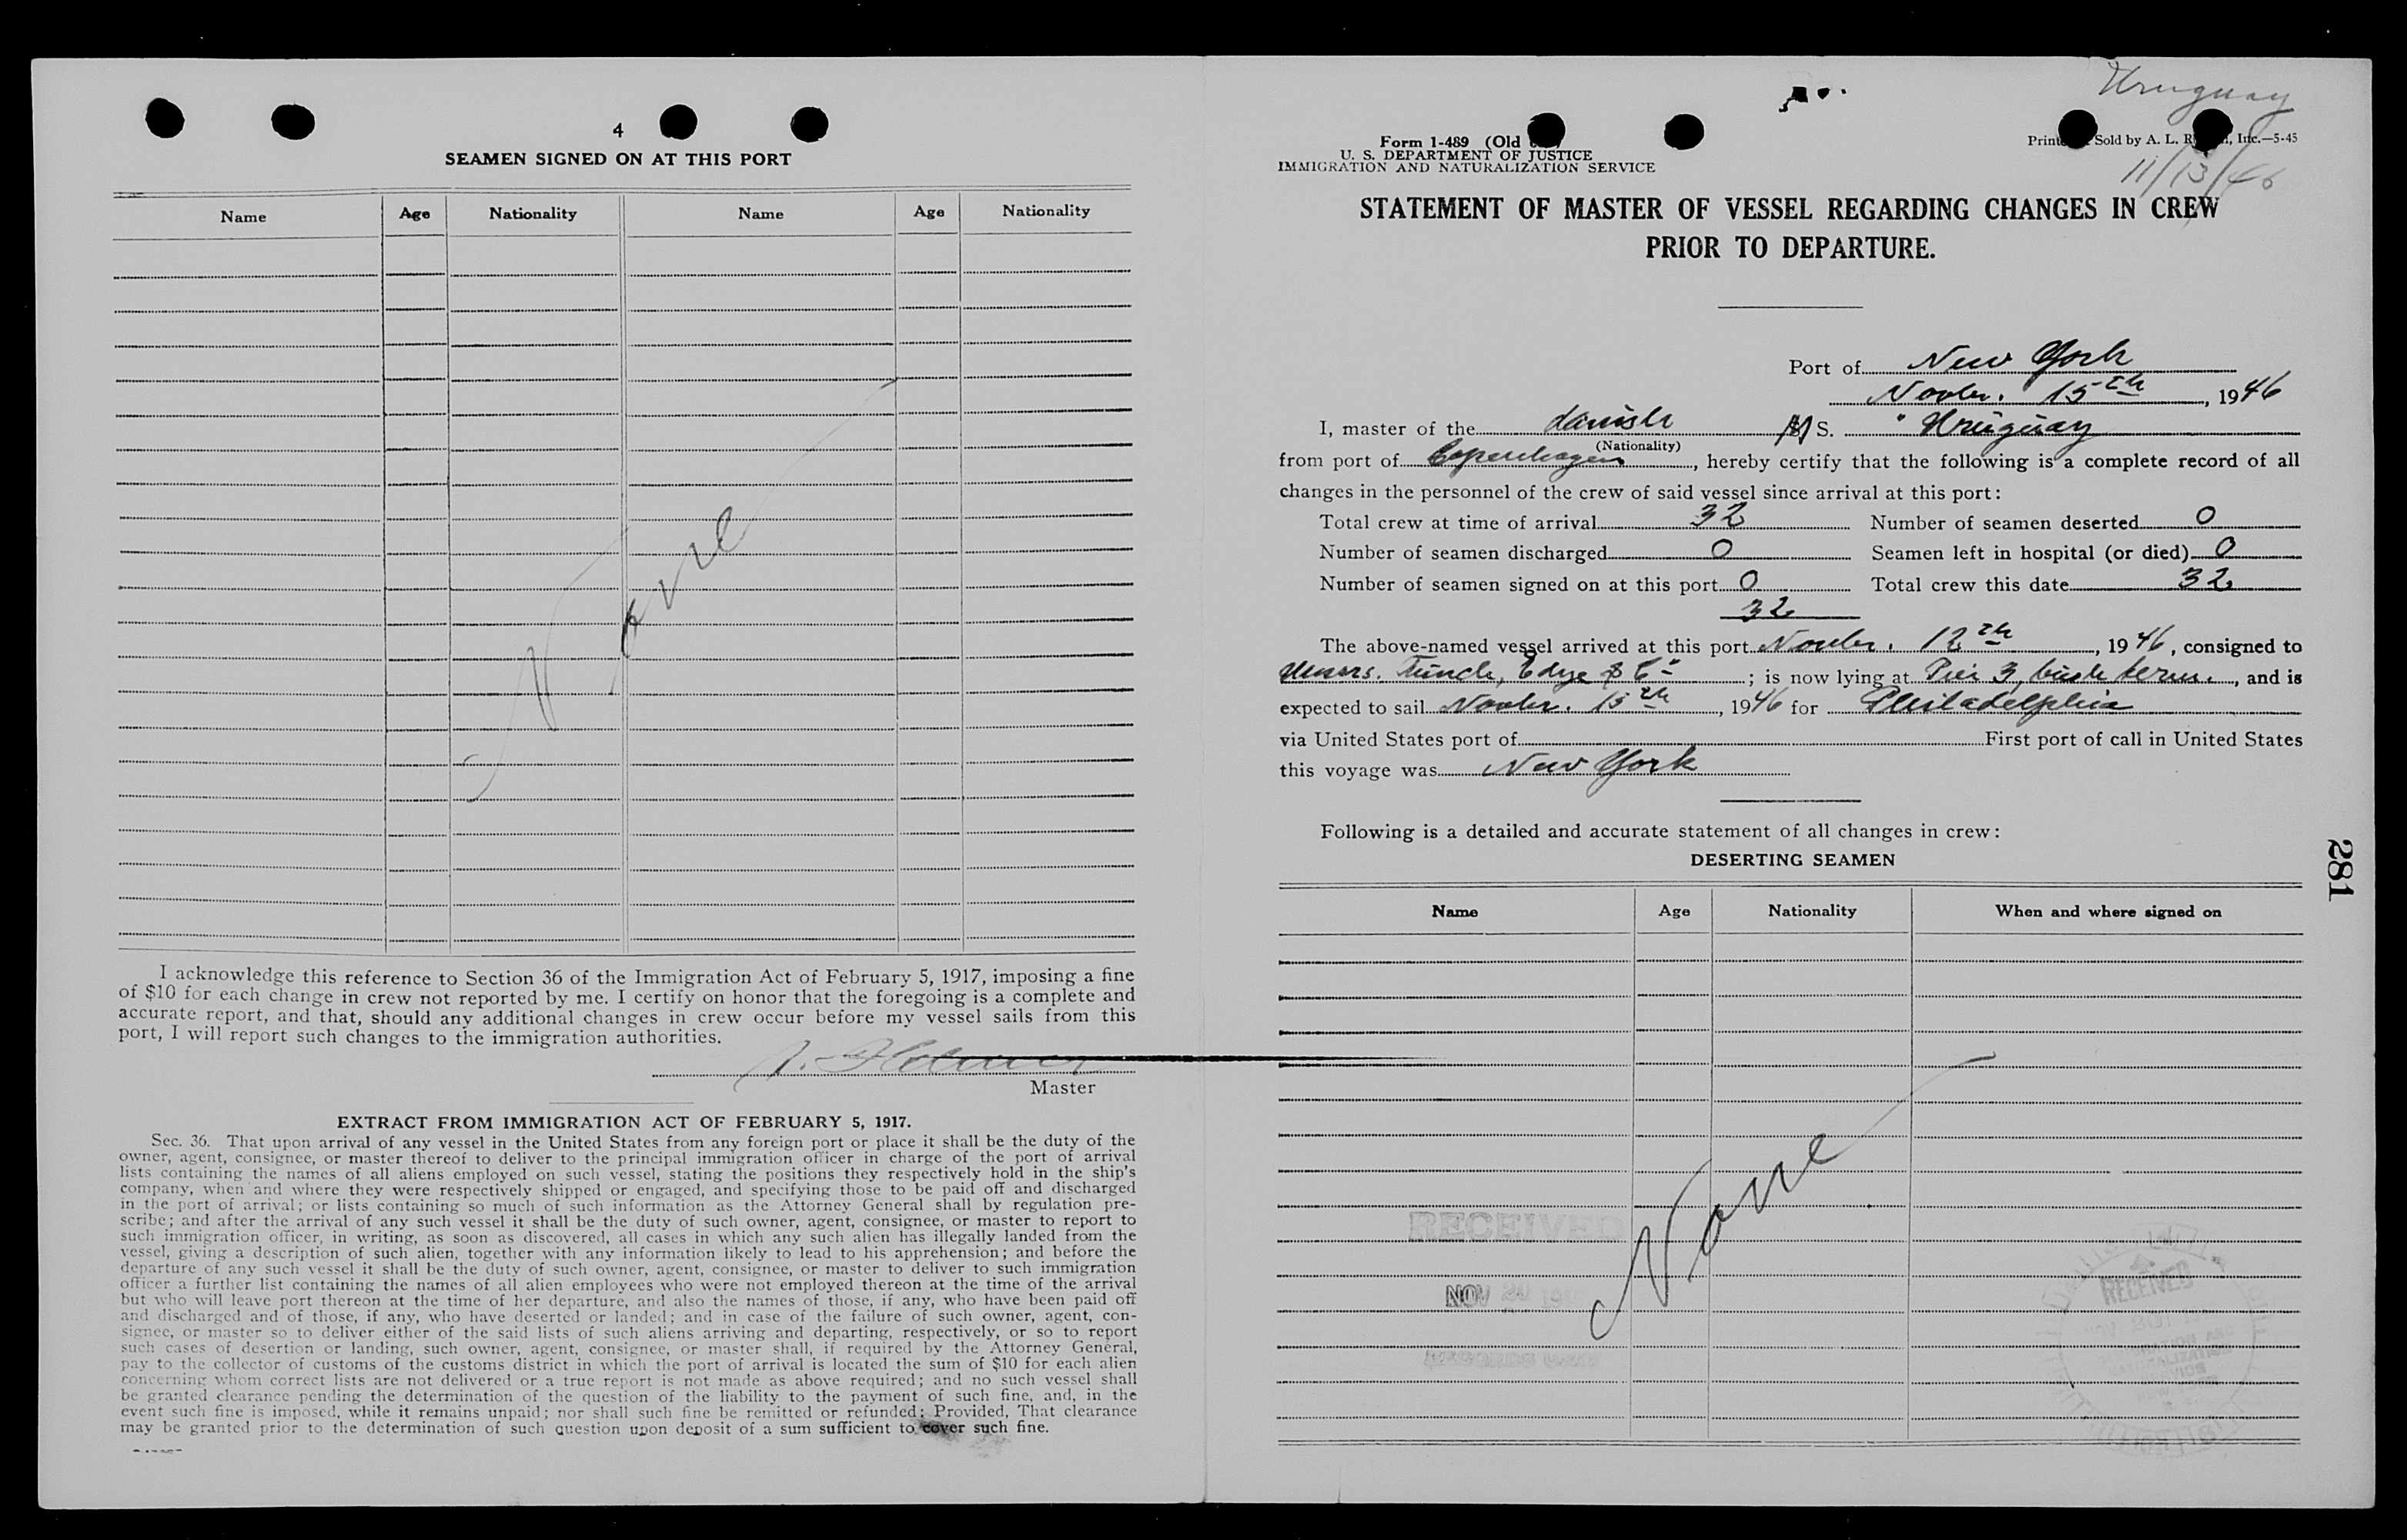 4
SEAMEN SIGNED ON AT THIS PORT
Name Age Nationality Name Age Nationality
None
I acknowledge this reference to Section 36 of the Immigration Act of February 5, 1917, imposing a fine
of $10 for each change in crew not reported by me. I certify on honor that the foregoing is a complete and
accurate report, and that, should any additional changes in crew occur before my vessel sails from this
port, I will report such changes to the immigration authorities.
Master
EXTRACT FROM IMMIGRATION ACT OF FEBRUARY 5, 1917.
Sec. 36. That upon arrival of any vessel in the United States from any foreign port or place it shall be the duty of the
owner, agent, consignee, or master thereof to deliver to the principal immigration officer in charge of the port of arrival
lists containing the names of all aliens employed on such vessel, stating the positions they respectively hold in the ship's
company, when and where they were respectively shipped or engaged, and specifying those to be paid off and discharged
in the port of arrival; or lists containing so much of such information as the Attorney General shall by regulation pre-
scribe; and after the arrival of any such vessel it shall be the duty of such owner, agent, consignee, or master to report to
such immigration officer, in writing, as soon as discovered, all cases in which any such alien has illegally landed from the
vessel, giving a description of such alien, together with any information likely to lead to his apprehension; and before the
departure of any such vessel it shall be the duty of such owner, agent, consignee, or master to deliver to such immigration
officer a further list containing the names of all alien employees who were not employed thereon at the time of the arrival
but who will leave port thereon at the time of her departure, and also the names of those, if any, who have been paid off
and discharged and of those, if any, who have deserted or landed; and in case of the failure of such owner, agent, con-
signee, or master so to deliver either of the said lists of such aliens arriving and departing, respectively, or so to report
such cases of desertion or landing, such owner, agent, consignee, or master shall, if required by the Attorney General,
pay to the collector of customs of the customs district in which the port of arrival is located the sum of $10 for each alien
concerning whom correct lists are not delivered or a true report is not made as above required; and no such vessel shall
be granted clearance pending the determination of the question of the liability to the payment of such fine, and, in the
event such fine is imposed, while it remains unpaid; nor shall such fine be remitted or refunded: Provided, That clearance
may be granted prior to the determination of such question upon deposit of a sum sufficient to cover such fine.
Uruguay
Form I-489 (Old
Sold by A. L. Inc.—5-45
U. S. DEPARTMENT OF JUSTICE
IMMIGRATION AND NATURALIZATION SERVICE
11/13/46
STATEMENT OF MASTER OF VESSEL REGARDING CHANGES IN CREW
PRIOR TO DEPARTURE.
Port of New York
Novbr. 15th, 1946
I, master of the danish M S. "Uruguay
(Nationality)
from port of Copenhagen, hereby certify that the following is a complete record of all
changes in the personnel of the crew of said vessel since arrival at this port:
Total crew at time of arrival 32 Number of seamen deserted 0
Number of seamen discharged 0 Seamen left in hospital (or died) 0
Number of seamen signed on at this port 0 Total crew this date 32
32
The above-named vessel arrived at this port Novbr. 12th, 1946, consigned to
Messrs. Funch, Edye & Co; is now lying at Pier 3, bush term., and is
expected to sail Novbr. 15th, 1946 for Philadelphia
via United States port of First port of call in United States
this voyage was New York
Following is a detailed and accurate statement of all changes in crew:
DESERTING SEAMEN
Name Age Nationality When and where signed on
None
RECEIVED
NOV 20
RECEIVED
281